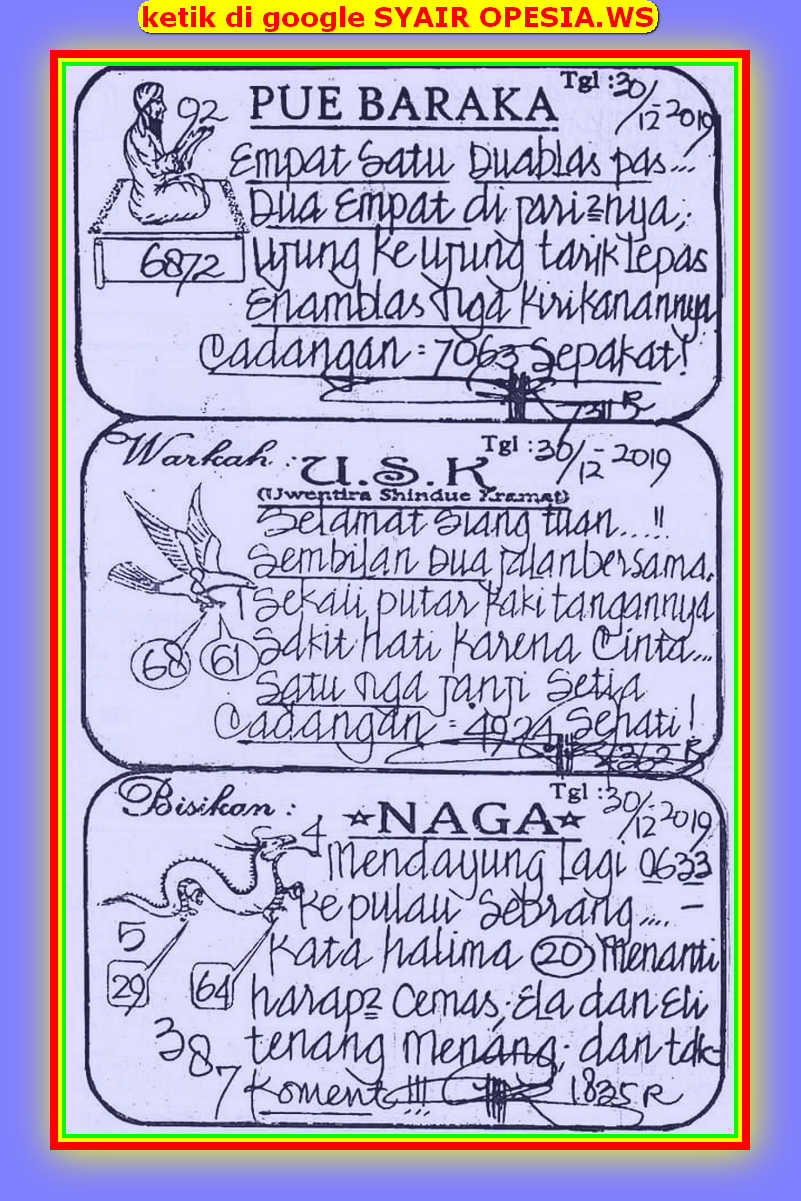 ketik di google SYAIR OPESIA.WS
Tgl : 30/12-2019
92
PUE BARAKA
Empat Satu Duablas pas...
Dua Empat di jari=nya,;
6872
Ujung ke ujung tarik lepas
Enamblas Tiga kirikanannya
Cadangan = 7063 Sepakat!
Warkah :
U.S.K
Tgl : 30/12-2019
(Uwentira Shindue Kramat)
Selamat Siang tuan...!!
Sembilan Dua jalanbersama.
Sekali putar kaki tangannya
68
61
Sakit hati karena Cinta...
Satu Tiga janji Setia
Cadangan = 4924 Sehati!
Bisikan :
☆NAGA☆
Tgl : 30/12-2019
4
Mendayung Lagi 0633
ke pulau Sebrang.... -
5
Kata halima 20 Menanti
29
64
harap2 Cemas,; Ela dan Eli
387
tenang menang; dan tdk
Koment !!!
1.835 R